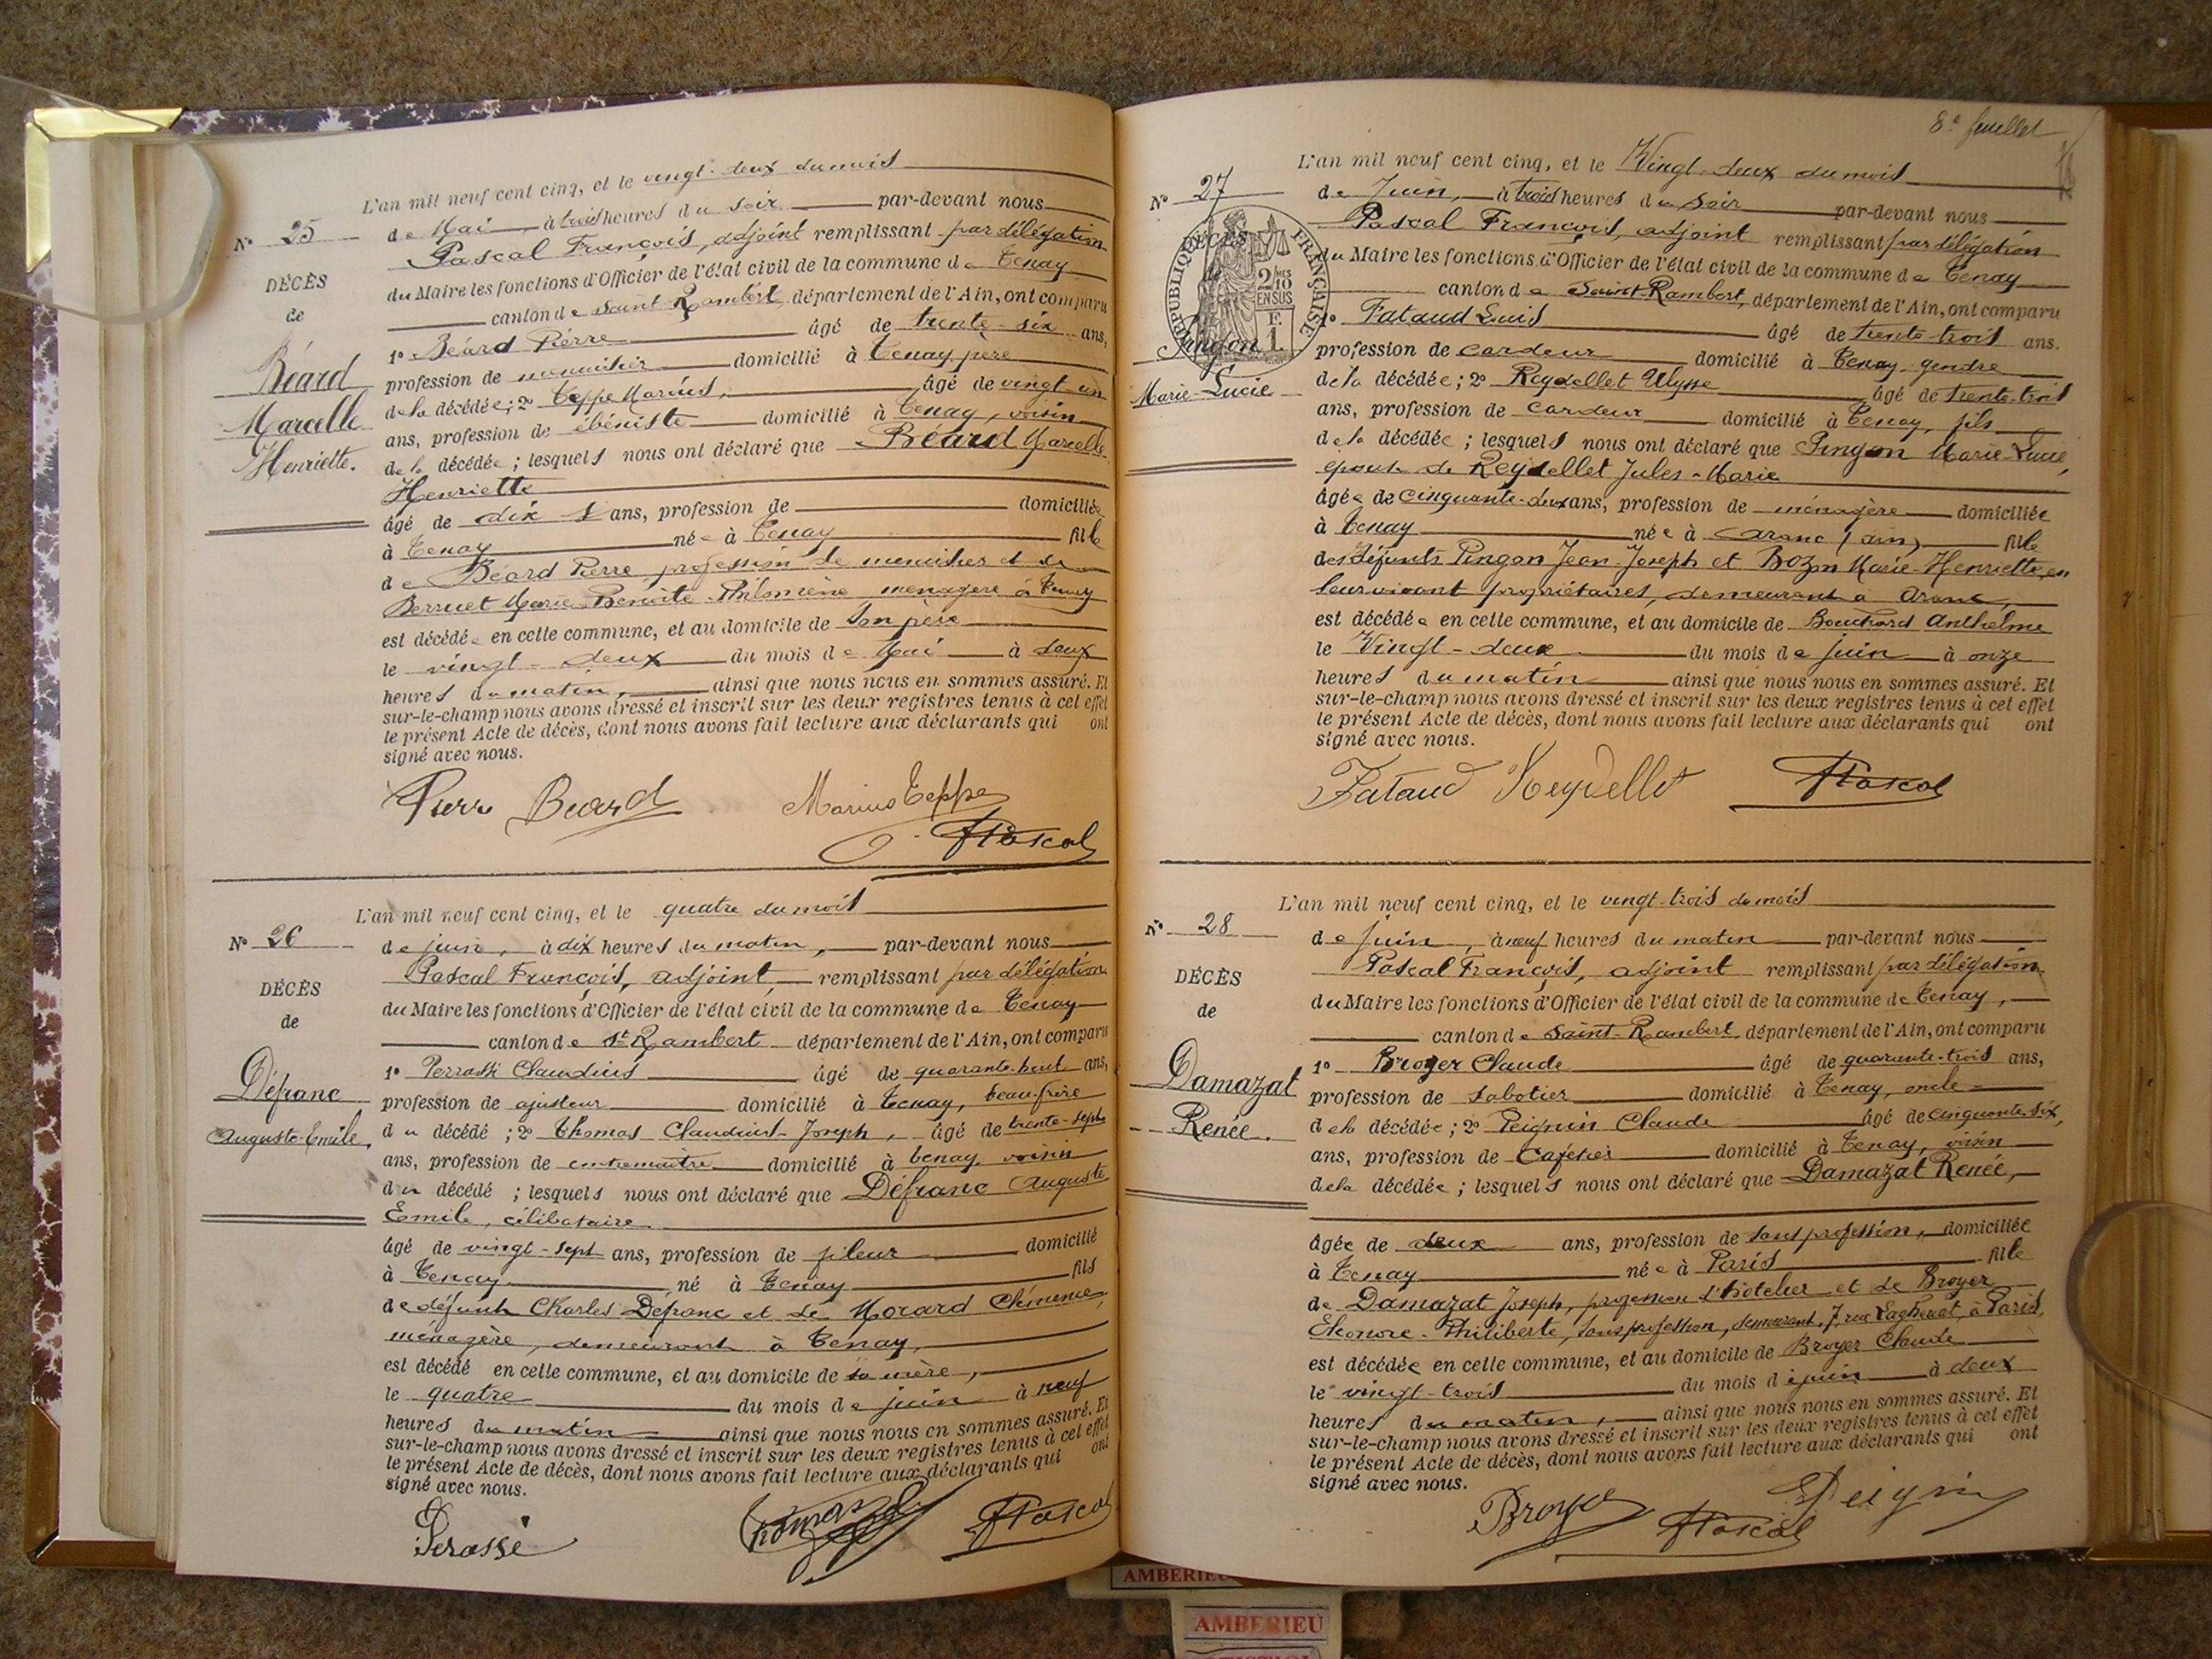 L'an mil neuf cent cinq, et le vingt-deux du mois
N° 25
de Mai, à trois heures du soir par-devant nous
Pascal François, adjoint remplissant par délégation
DÉCÈS
du Maire les fonctions d'Officier de l'état civil de la commune de Tenay
de
canton de Saint-Rambert, département de l'Ain, ont comparu
1° Béard Pierre âgé de trente-six ans,
Béard
profession de menuisier domicilié à Tenay, père
Marcelle
de la décédée; 2° Teppe Marius, âgé de vingt-un
Henriette.
ans, profession de ébéniste domicilié à Tenay, voisin
de la décédée; lesquels nous ont déclaré que Béard Marcelle
Henriette
âgé de dix ans, profession de domiciliée
à Tenay née à Tenay fille
de Béard Pierre profession de menuisier et de
Berruet Marie-Benoîte-Philomène ménagère à Tenay
est décédée en cette commune, et au domicile de son père
le vingt-deux du mois de Mai à deux
heures du matin, ainsi que nous nous en sommes assuré. Et
sur-le-champ nous avons dressé et inscrit sur les deux registres tenus à cet effet
le présent Acte de décès, dont nous avons fait lecture aux déclarants qui ont
signé avec nous.
Pierre Béard Marius Teppe
FPascal
L'an mil neuf cent cinq, et le quatre du mois
N° 26
de juin, à dix heures du matin, par-devant nous
Pascal François, adjoint, remplissant par délégation
DÉCÈS
du Maire les fonctions d'Officier de l'état civil de la commune de Tenay
de
canton de St Rambert département de l'Ain, ont comparu
1° Perrassi Claudius âgé de quarante-huit ans,
Défranc
profession de ajusteur domicilié à Tenay, beau-frère
Auguste-Emile.
du décédé; 2° Thomas Claudius-Joseph, âgé de trente-sept
ans, profession de contremaître domicilié à Tenay, voisin
du décédé; lesquels nous ont déclaré que Défranc Auguste
Emile, célibataire
âgé de vingt-sept ans, profession de fileur domicilié
à Tenay né à Tenay fils
de défunt Charles Défranc et de Morard Clémence,
ménagère, demeurant à Tenay,
est décédé en cette commune, et au domicile de sa mère,
le quatre du mois de juin à neuf
heures du matin ainsi que nous nous en sommes assuré. Et
sur-le-champ nous avons dressé et inscrit sur les deux registres tenus à cet effet
le présent Acte de décès, dont nous avons fait lecture aux déclarants qui ont
signé avec nous.
Perassi Thomas FPascal
8e feuillet
L'an mil neuf cent cinq, et le Vingt-deux du mois
N° 27
de Juin, à trois heures du soir par-devant nous
Pascal François, adjoint remplissant par délégation
DÉCÈS
RÉPUBLIQUE FRANÇAISE
2/10 EN SUS
F. 1.
du Maire les fonctions d'Officier de l'état civil de la commune de Tenay
canton de Saint-Rambert, département de l'Ain, ont comparu
1° Fataud Louis âgé de trente-trois ans.
Pingon
profession de cardeur domicilié à Tenay gendre
Marie-Lucie
de la décédée; 2° Reydellet Ulysse âgé de trente-trois
ans, profession de cardeur domicilié à Tenay, fils
de la décédée; lesquels nous ont déclaré que Pingon Marie-Lucie,
épouse de Reydellet Jules-Marie
âgée de cinquante-deux ans, profession de ménagère domiciliée
à Tenay née à Aranc (Ain) fille
des défunts Pingon Jean-Joseph et Bozon Marie-Henriette, en
leur vivant propriétaires, demeurant à Aranc,
est décédée en cette commune, et au domicile de Bouchard Anthelme
le Vingt-deux du mois de juin à onze
heures du matin ainsi que nous nous en sommes assuré. Et
sur-le-champ nous avons dressé et inscrit sur les deux registres tenus à cet effet
le présent Acte de décès, dont nous avons fait lecture aux déclarants qui ont
signé avec nous.
Fataud Reydellet FPascal
L'an mil neuf cent cinq, et le vingt-trois du mois
N° 28
de Juin, à neuf heures du matin par-devant nous
Pascal François, adjoint remplissant par délégation
DÉCÈS
du Maire les fonctions d'Officier de l'état civil de la commune de Tenay,
de
canton de Saint-Rambert, département de l'Ain, ont comparu
1° Broyer Claude âgé de quarante-trois ans,
Damazat
profession de sabotier domicilié à Tenay, oncle
Renée.
de la décédée; 2° Peignin Claude âgé de cinquante-six,
ans, profession de Cafetier domicilié à Tenay, voisin
de la décédée; lesquels nous ont déclaré que Damazat Renée,
âgée de deux ans, profession de sans profession, domiciliée
à Tenay née à Paris fille
de Damazat Joseph, profession d'hôtelier et de Broyer
Eléonore-Philiberte, sans profession, demeurant, 7 rue à Paris,
est décédée en cette commune, et au domicile de Broyer Claude
le vingt-trois du mois de juin à deux
heures du matin, ainsi que nous nous en sommes assuré. Et
sur-le-champ nous avons dressé et inscrit sur les deux registres tenus à cet effet
le présent Acte de décès, dont nous avons fait lecture aux déclarants qui ont
signé avec nous.
Broyer FPascal Peignin
AMBERIEU
AMBERIEU